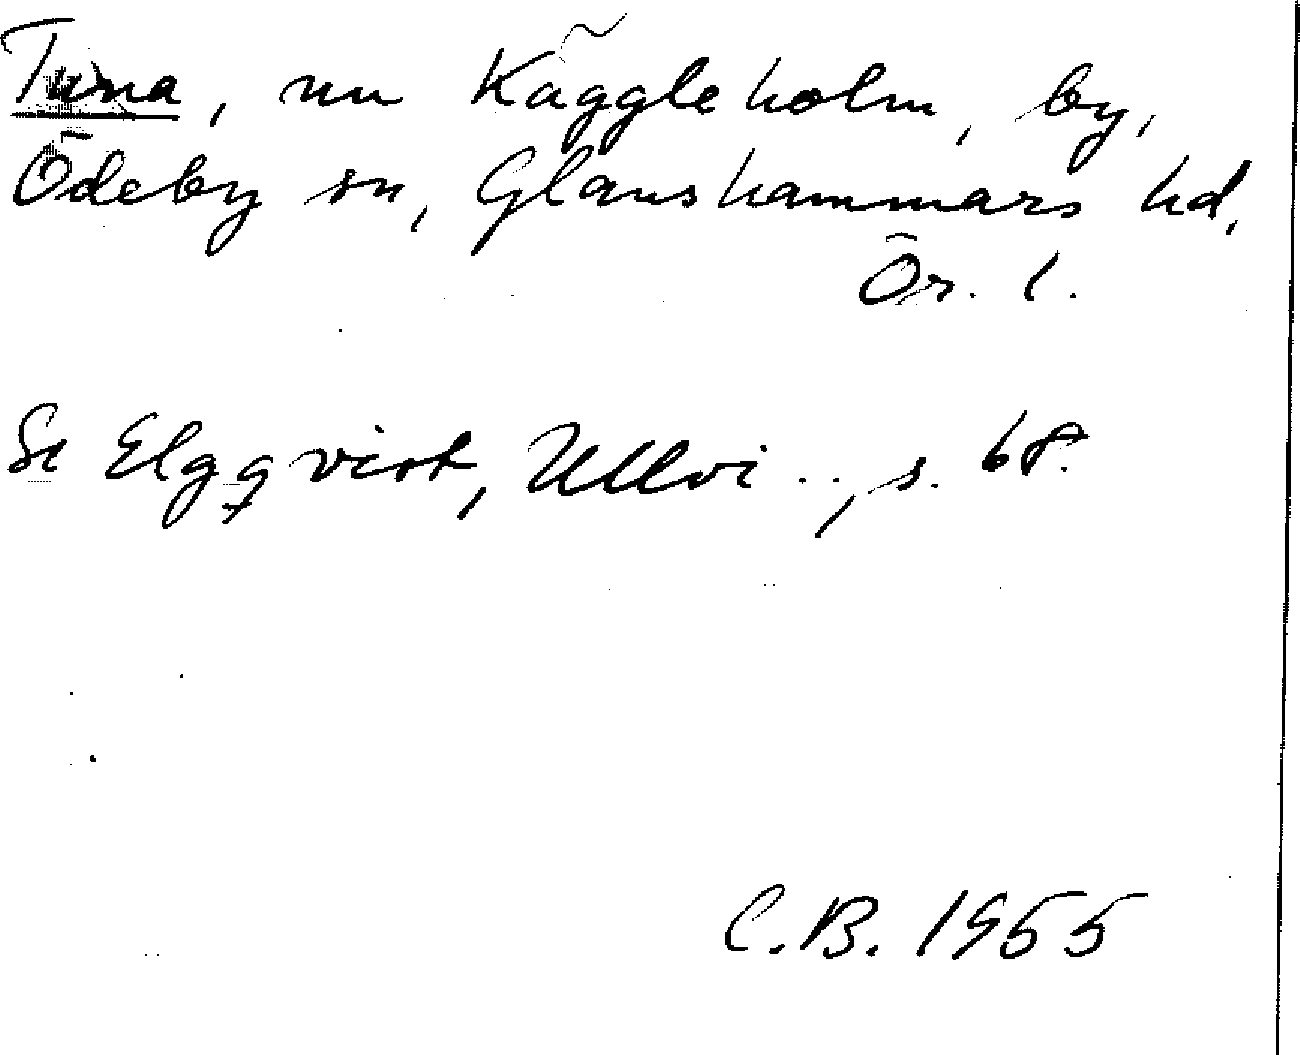 Tuna, nu Käggleholm, by,
Ödeby sn, Glanshammars hd,
Ör. l.
Se Elgqvist, Ullvi.., s. 68.
C.B. 1955